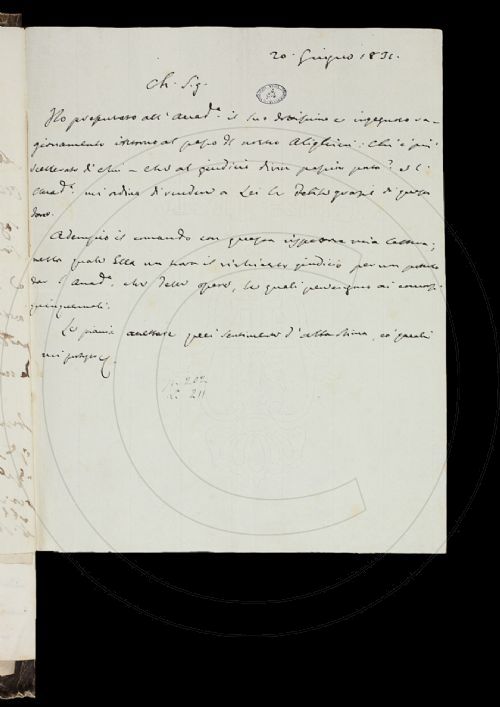 20. Giugno 1831.
Ch. Sig.
Ho presentato all' Accad.a il suo dottissimo e ingegnoso ra-
gionamento intorno al passo del nostro Alighieri: Chi è più
scellerato di chi – che al giudicio divin passion porta? e l'
Accad.a mi ordina di rendere a Lei le debite grazie di questo
dono.
Adempio il comando con questa rispettosa mia lettera;
nella quale Ella non trova il richiesto giudicio per
dar l' Accad.a che delle opere, le quali pervengono ai concorsi
quinquennali.
Le piaccia accettare questi sentimenti d' alta stima, co' quali
mi protesto
N. 202
L. 211